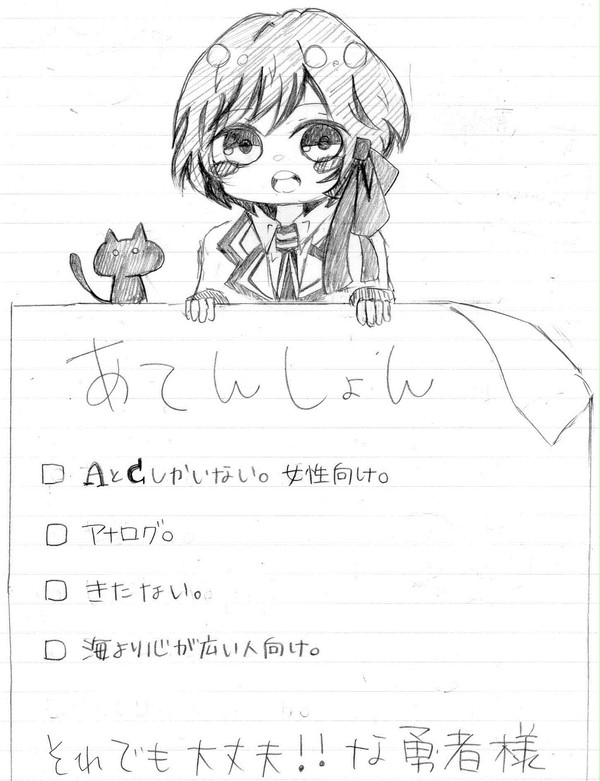 あてんしょん
□ AとCしかいない。女性向け。
□ アナログ。
□ きたない。
□ 海より心が広い人向け。
それでも大丈夫!!な勇者様